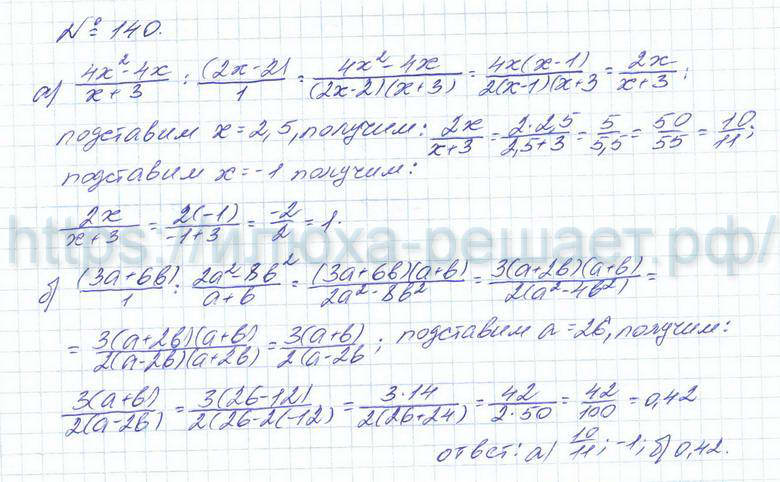 № 140.
а) (4x² - 4x)/(x+3) : (2x-2)/1 = (4x² - 4x)/((2x-2)(x+3)) = 4x(x-1)/(2(x-1)(x+3 = 2x/(x+3) ;
подставим x = 2,5, получим: 2x/(x+3) = 2·2,5/(2,5+3) = 5/5,5 = 50/55 = 10/11 ;
подставим x = -1 получим:
2x/(x+3) = 2(-1)/(-1+3) = -2/2 = 1.
https://илюха-решает.рф/
б) (3a+6b)/1 : (2a² 8b²)/(a+b) = (3a+6b)(a+b)/(2a² - 8b²) = 3(a+2b)(a+b)/(2(a² - 4b²) =
= 3(a+2b)(a+b)/(2(a-2b)(a+2b) = 3(a+b)/(2(a-2b ; подставим a = 26, получим:
3(a+b)/(2(a-2b) = 3(26-12)/(2(26-2(-12) = 3·14/(2(26+24) = 42/(2·50) = 42/100 = 0,42
ответ: а) 10/11; -1; б) 0,42.